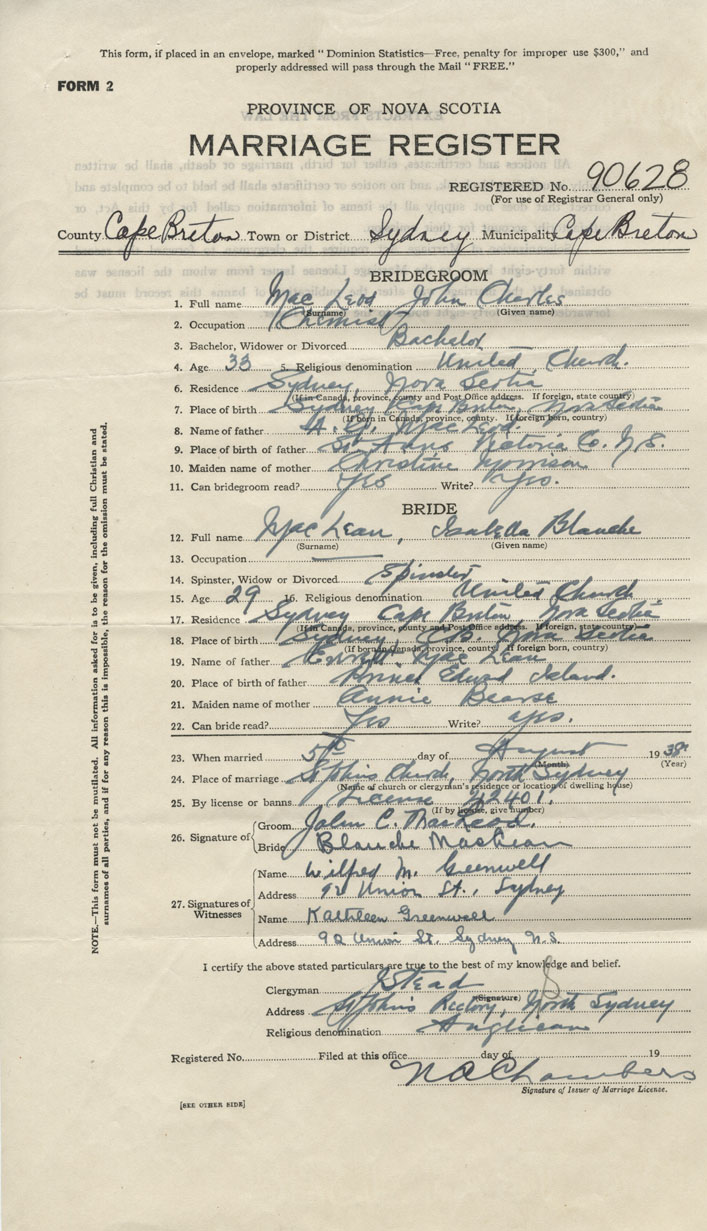 This form, if placed in an envelope, marked "Dominion Statistics—Free, penalty for improper use $300," and
properly addressed will pass through the Mail "FREE."
FORM 2
PROVINCE OF NOVA SCOTIA
MARRIAGE REGISTER
REGISTERED No. 90628
(For use of Registrar General only)
County Cape Breton Town or District Sydney Municipality Cape Breton
BRIDEGROOM
1. Full name Mac Leod John Charles
(Surname) (Given name)
2. Occupation Chemist
3. Bachelor, Widower or Divorced Bachelor
4. Age 33 5. Religious denomination United Church.
6. Residence Sydney, Nova Scotia
(If in Canada, province, county and Post Office address. If foreign, state country)
7. Place of birth Sydney Cape Breton, Nova Scotia
(If born in Canada, province, county. If foreign born, country)
8. Name of father Mac Leod
9. Place of birth of father St. Anns Victoria Co. N.S.
10. Maiden name of mother Christine Morrison
11. Can bridegroom read? Yes Write? Yes.
BRIDE
12. Full name Mac Lean, Isabella Blanche
(Surname) (Given name)
13. Occupation
14. Spinster, Widow or Divorced Spinster
15. Age 29 16. Religious denomination United Church
17. Residence Sydney Cape Breton, Nova Scotia
(If in Canada, province, county and Post Office address. If foreign, state country)
18. Place of birth Sydney, C.B. Nova Scotia
(If born in Canada, province, county. If foreign born, country)
19. Name of father Mac Lean
20. Place of birth of father Prince Edward Island.
21. Maiden name of mother Annie Bearse
22. Can bride read? Yes Write? Yes.
23. When married 5th day of August 19 38
(Month) (Year)
24. Place of marriage St Johns Church, North Sydney
(Name of church or clergyman's residence or location of dwelling house)
25. By license or banns License 42401.
(If by license, give number)
26. Signature of
Groom John C. MacLeod.
Bride Blanche MacLean
27. Signatures of Witnesses
Name Wilfred M. Greenwell
Address 92 Union St., Sydney
Name Kathleen Greenwell
Address 92 Union St. Sydney N.S.
I certify the above stated particulars are true to the best of my knowledge and belief.
Clergyman Stead
(Signature)
Address St Johns Rectory, North Sydney
Religious denomination Anglican
Registered No. Filed at this office day of 19
N A Chambers
Signature of Issuer of Marriage License.
[SEE OTHER SIDE]
NOTE.—This form must not be mutilated. All information asked for is to be given, including full Christian and
surnames of all parties, and if for any reason this is impossible, the reason for the omission must be stated.